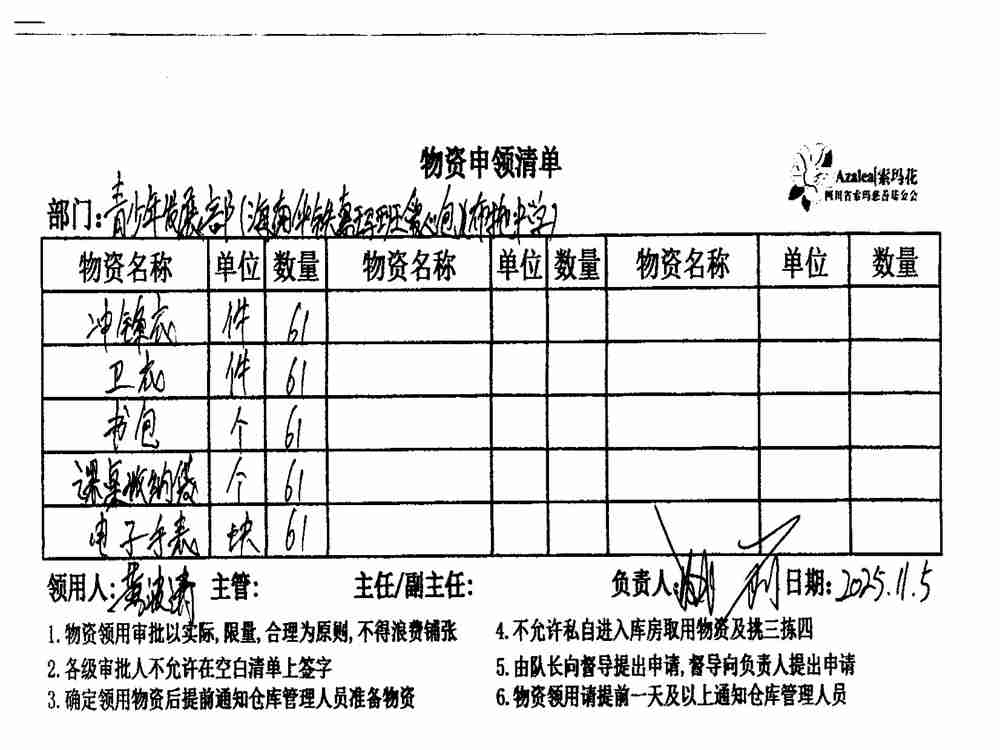 物资申领清单
Azalea|索玛花
四川省索玛慈善基金会
部门:青少年发展部(海南华铁惠玛班爱心包)(布拖中学)
物资名称 单位 数量 物资名称 单位 数量 物资名称 单位 数量
冲锋衣 件 61
卫衣 件 61
书包 个 61
课桌收纳袋 个 61
电子手表 块 61
领用人: 主管: 主任/副主任: 负责人: 日期:2025.11.5
1.物资领用审批以实际,限量,合理为原则,不得浪费铺张
4.不允许私自进入库房取用物资及挑三拣四
2.各级审批人不允许在空白清单上签字
5.由队长向督导提出申请,督导向负责人提出申请
3.确定领用物资后提前通知仓库管理人员准备物资
6.物资领用请提前一天及以上通知仓库管理人员